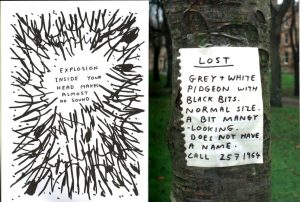 EXPLOSION
INSIDE YOUR
HEAD MAKES
ALMOST
NO SOUND
LOST
GREY + WHITE
PIDGEON WITH
BLACK BITS.
NORMAL SIZE.
A BIT MANGY
-LOOKING.
DOES NOT HAVE
A NAME.
CALL 2571964